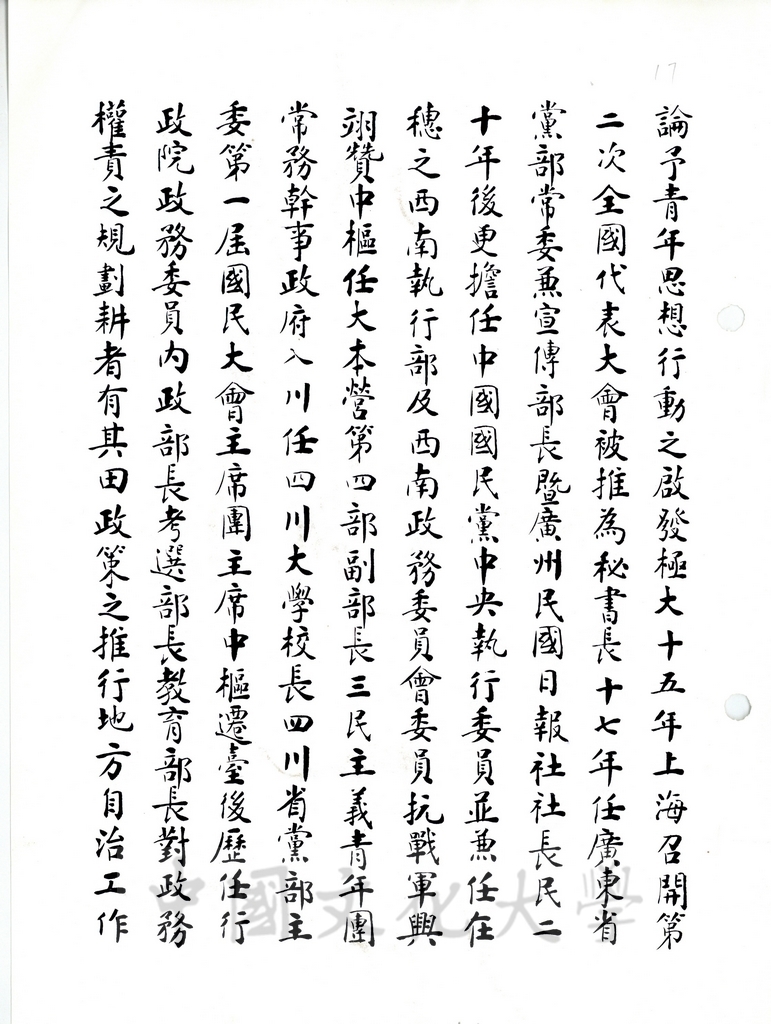 17
論予青年思想行動之啟發極大十五年上海召開第
二次全國代表大會被推為秘書長十七年任廣東省
黨部常委兼宣傳部長暨廣州民國日報社社長民二
十年後更擔任中國國民黨中央執行委員並兼任在
穗之西南執行部及西南政務委員會委員抗戰軍興
翊贊中樞任大本營第四部副部長三民主義青年團
常務幹事政府入川任四川大學校長四川省黨部主
委第一屆國民大會主席團主席中樞遷臺後歷任行
政院政務委員內政部長考選部長教育部長對政務
權責之規劃耕者有其田政策之推行地方自治工作
中國文化大學